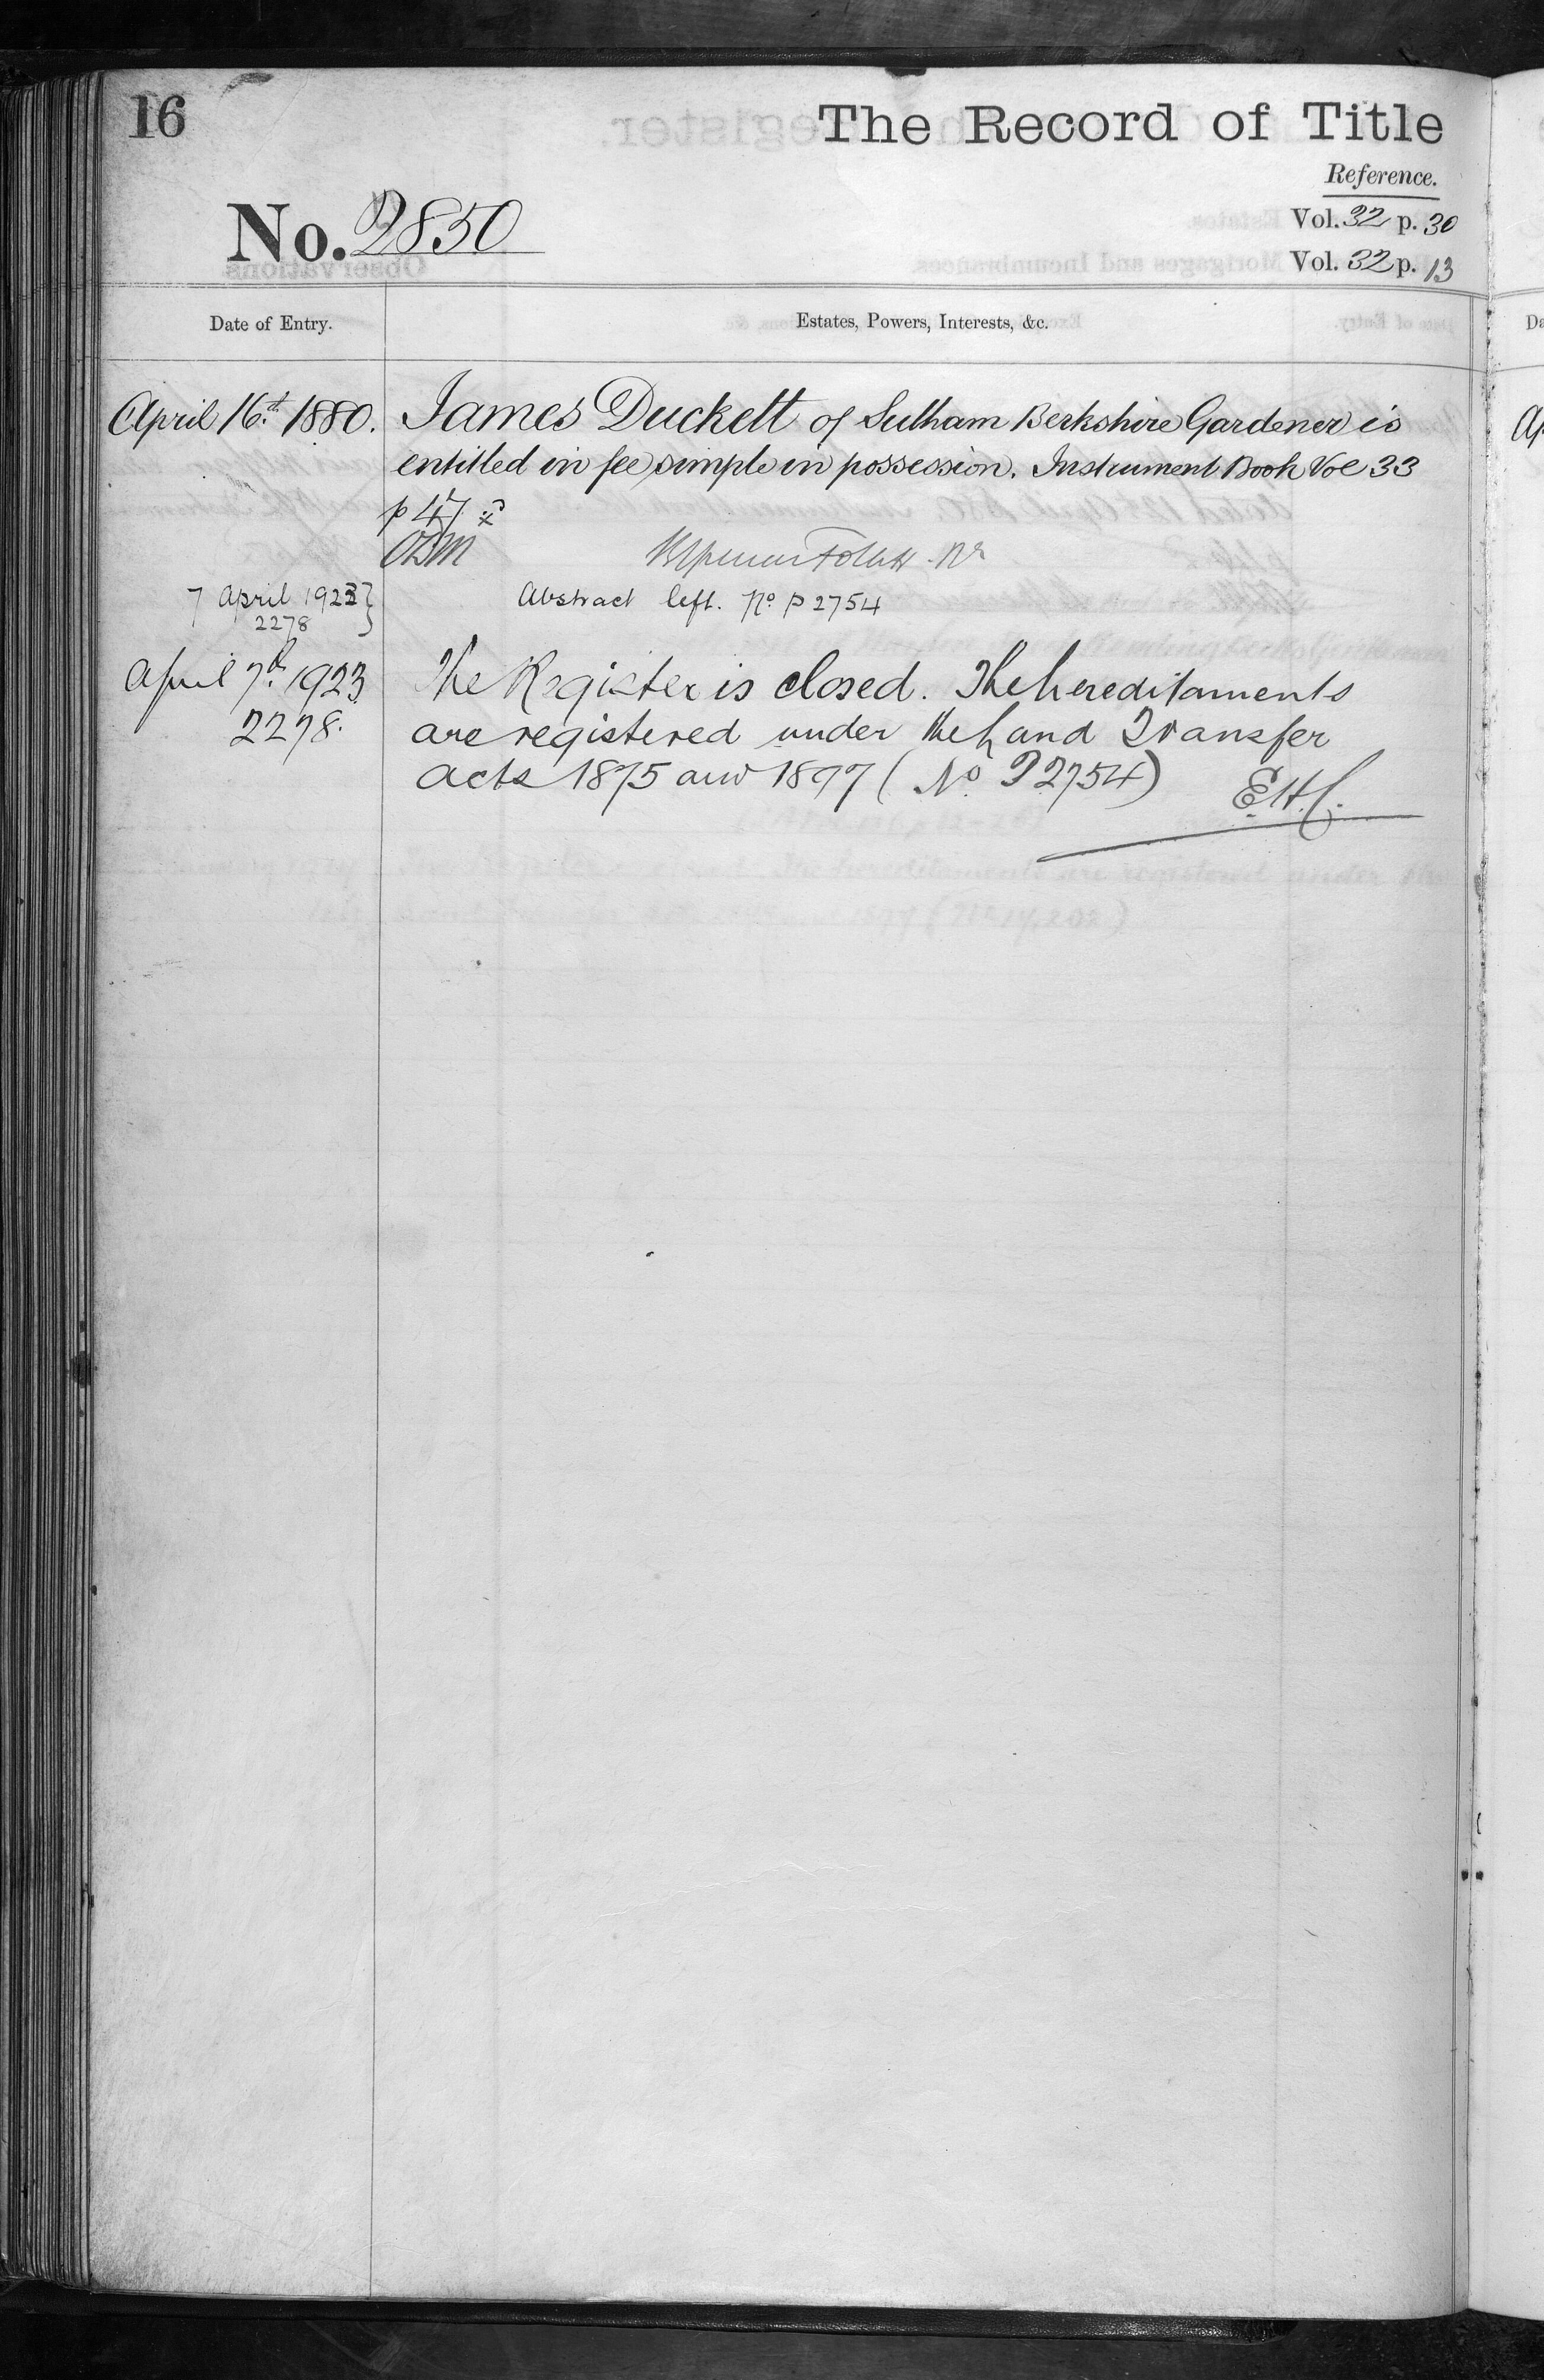 16
The Record of Title
Reference.
No. 2850
Vol. 32 p. 30
Vol. 32 p. 13
Date of Entry.
Estates, Powers, Interests, &c.
April 16th 1880.
James Duckett of Sulham Berkshire Gardener is
entitled in fee simple in possession. Instrument Book Vol 33
p 47
7 April 1923
2278
Abstract left. No P 2754
April 7th 1923
2278.
The Register is closed. The hereditaments
are registered under the Land Transfer
Acts 1875 and 1897 (No P2754)